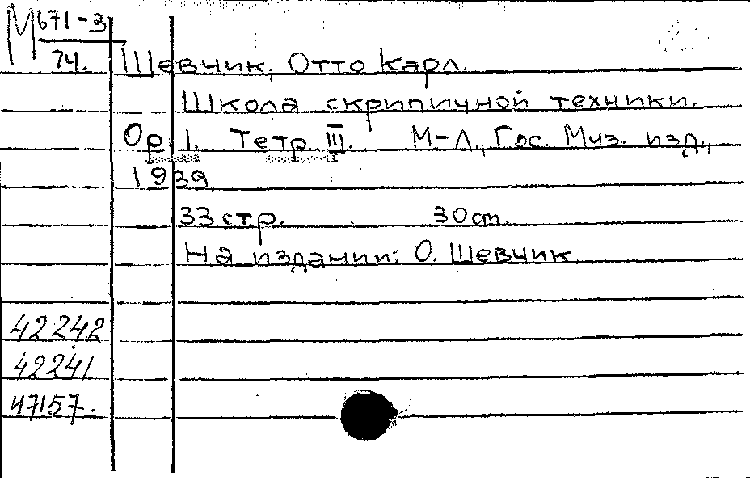 М 671-3
74.
Шевчик, Отто Карл.
Школа скрипичной техники.
Ор 1. Тетр. III. М-Л., Гос. Муз. изд.,
1939
33 стр. 30 cm.
На издании: О. Шевчик.
42242
42241
47157.